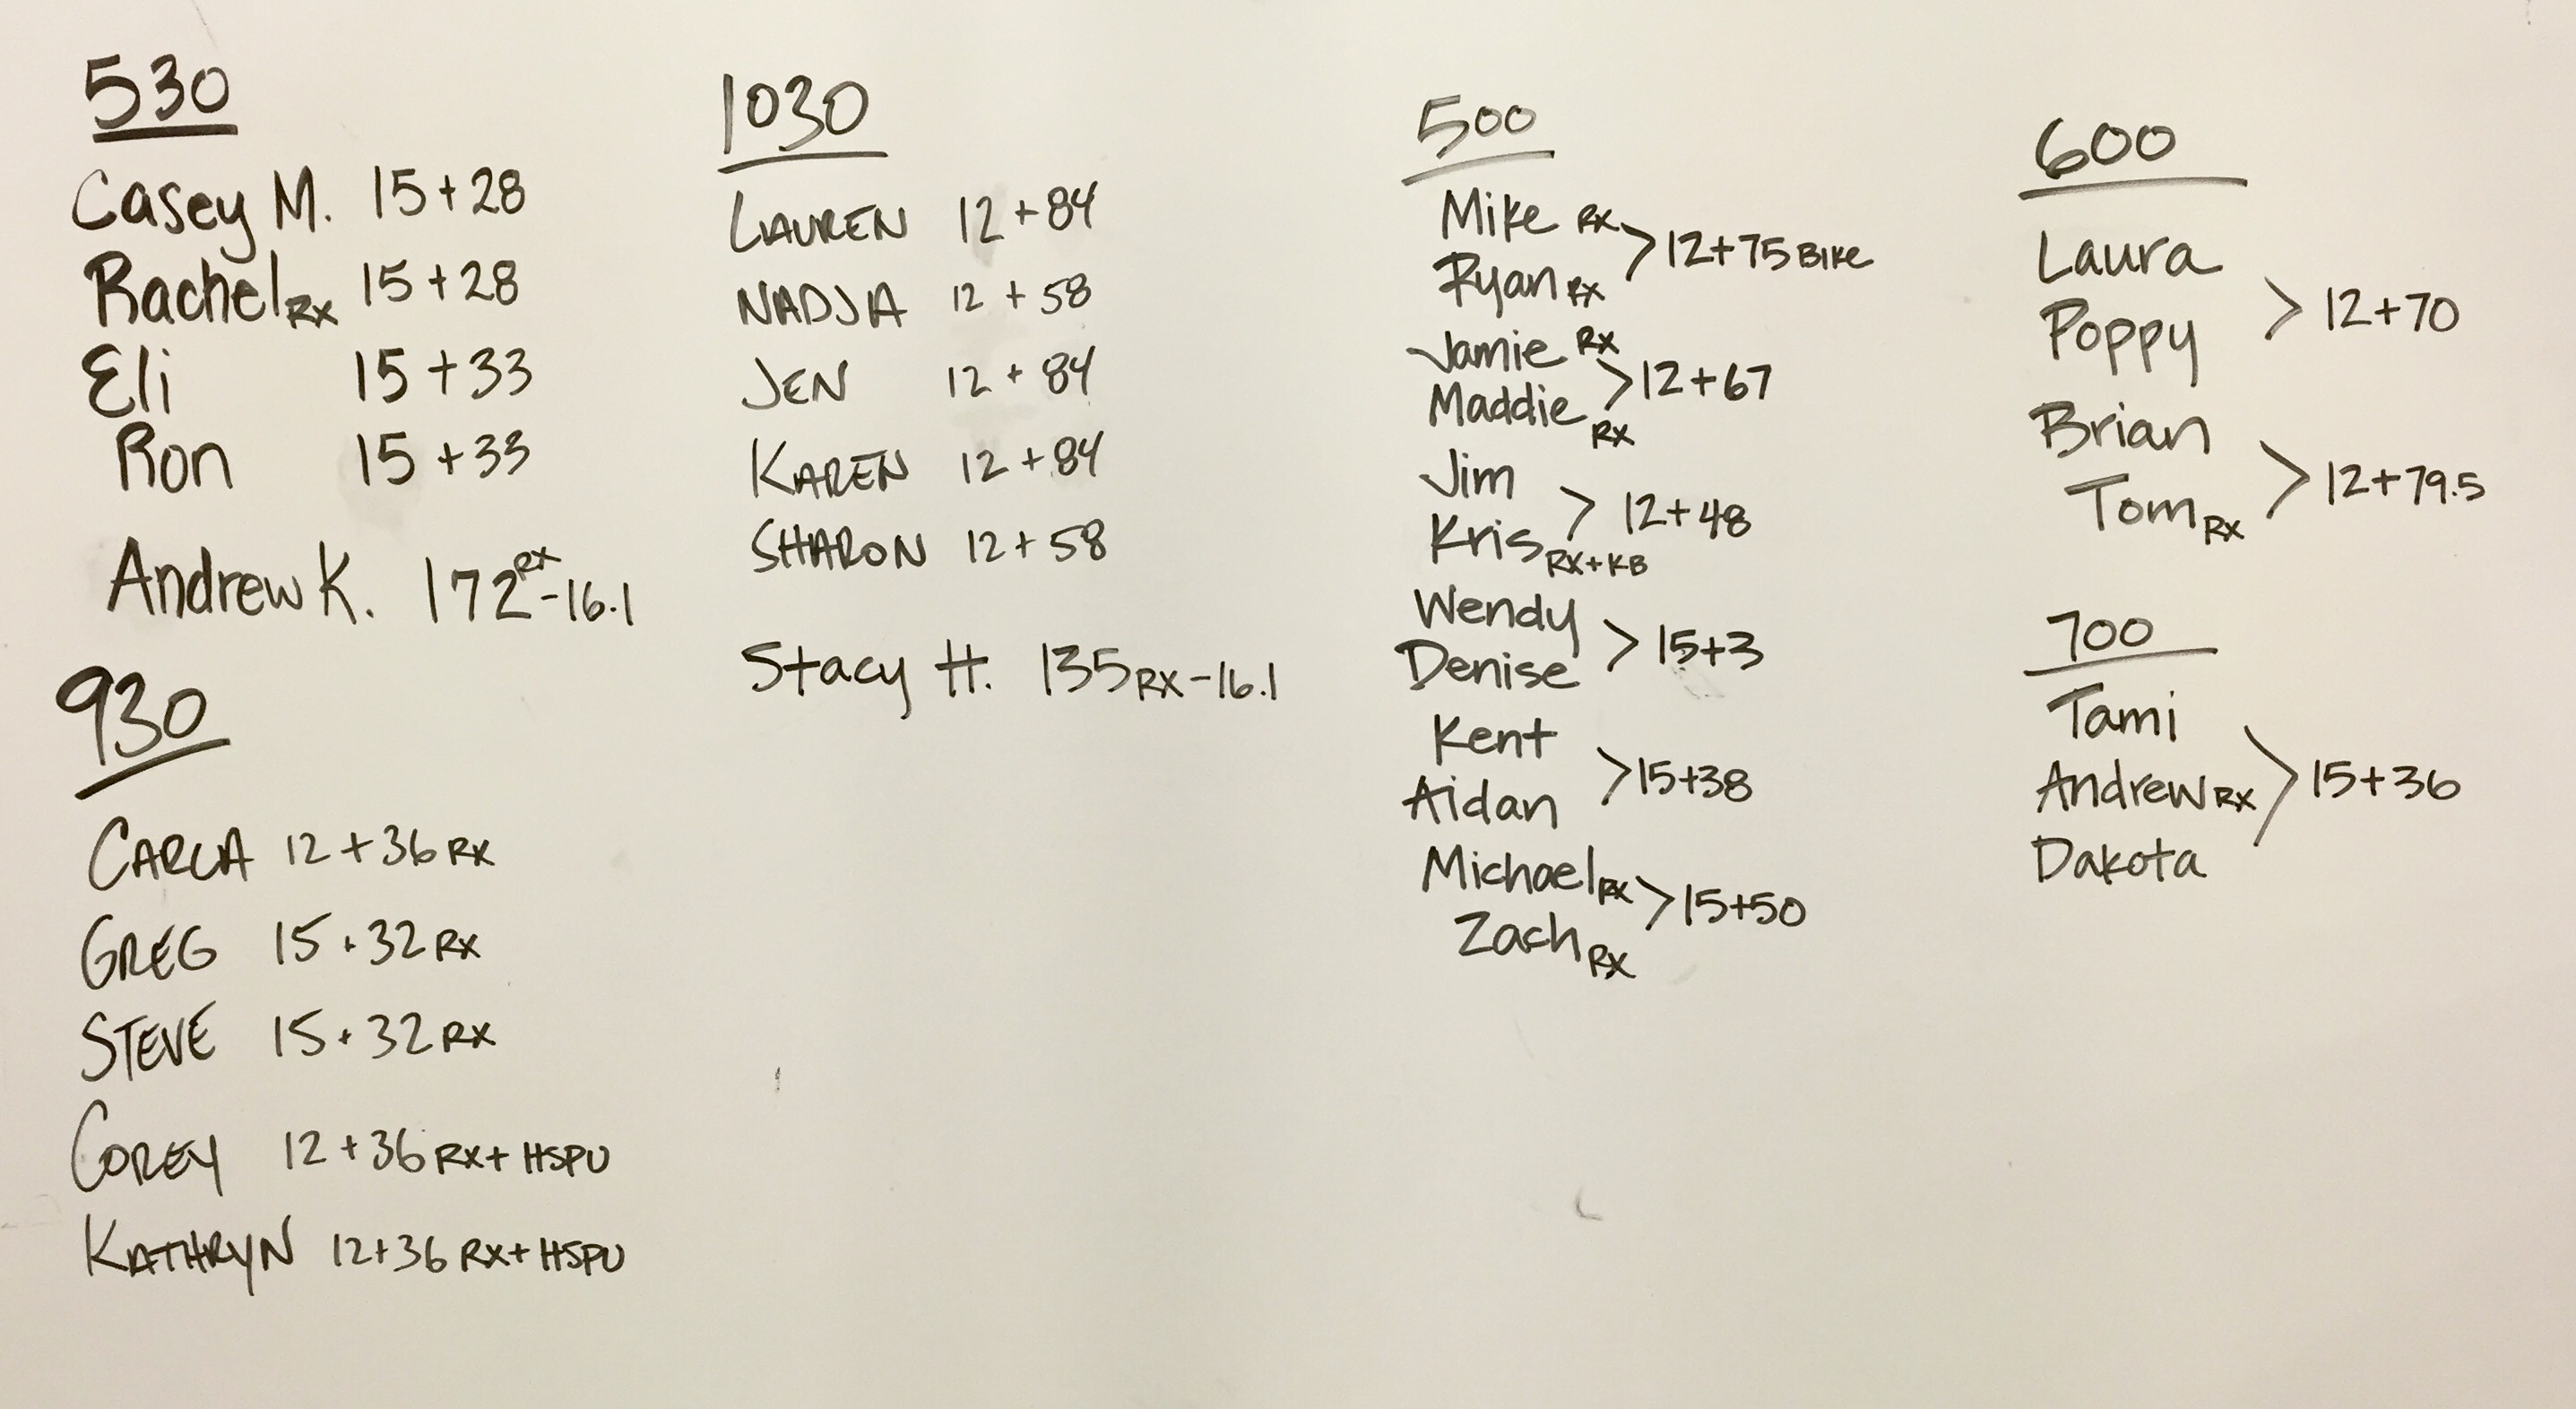 530
Casey M. 15+28
Rachel RX 15+28
Eli 15+33
Ron 15+33
Andrew K. 172 RX -16.1
930
CARLA 12+36 RX
GREG 15+32 RX
STEVE 15+32 RX
COREY 12+36 RX+HSPU
KATHRYN 12+36 RX+HSPU
1030
LAUREN 12+84
NADJA 12+58
JEN 12+84
KAREN 12+84
SHARON 12+58
Stacy H. 135 RX-16.1
500
Mike RX
Ryan RX > 12+75 BIKE
Jamie RX
Maddie RX > 12+67
Jim
Kris RX+KB > 12+48
Wendy
Denise > 15+3
Kent
Aidan > 15+38
Michael RX
Zach RX > 15+50
600
Laura
Poppy > 12+70
Brian
Tom RX > 12+79.5
700
Tami
Andrew RX > 15+36
Dakota